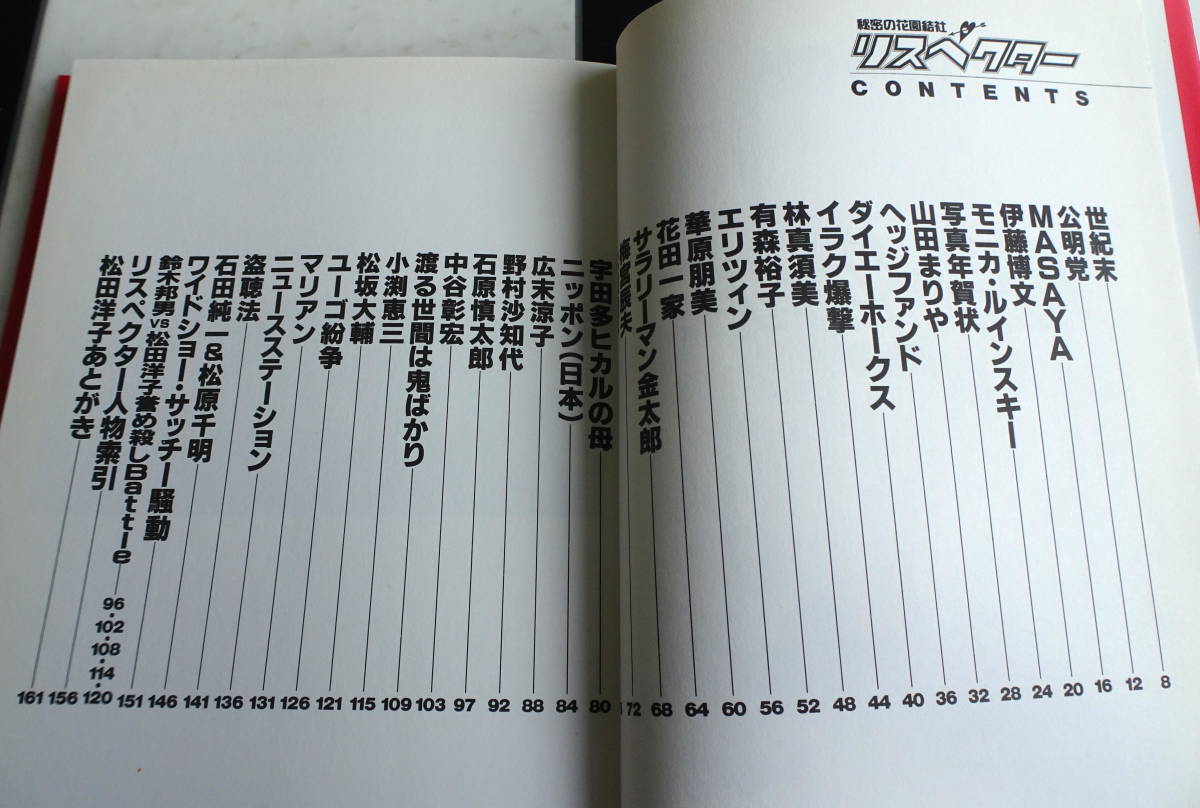 秘密の花園結社
リスペクター
CONTENTS
世紀末 8
公明党 12
MASAYA 16
伊藤博文 20
モニカ・ルインスキー 24
写真年賀状 28
山田まりや 32
ヘッジファンド 36
ダイエーホークス 40
イラク爆撃 44
林真須美 48
有森裕子 52
エリツィン 56
華原朋美 60
花田一家 64
サラリーマン金太郎 68
梅宮辰夫 72
宇田多ヒカルの母 80
ニッポン(日本) 84
広末涼子 88
野村沙知代 92
石原慎太郎 97
中谷彰宏 103
渡る世間は鬼ばかり 109
小渕恵三 115
松坂大輔 121
ユーゴ紛争 126
マリアン 131
ニュースステーション 136
盗聴法 141
石田純一&松原千明 146
ワイドショー・サッチー騒動 151
鈴木邦男vs松田洋子誉め殺しBattle 96・102・108・114・120
リスペクター人物索引 156
松田洋子あとがき 161